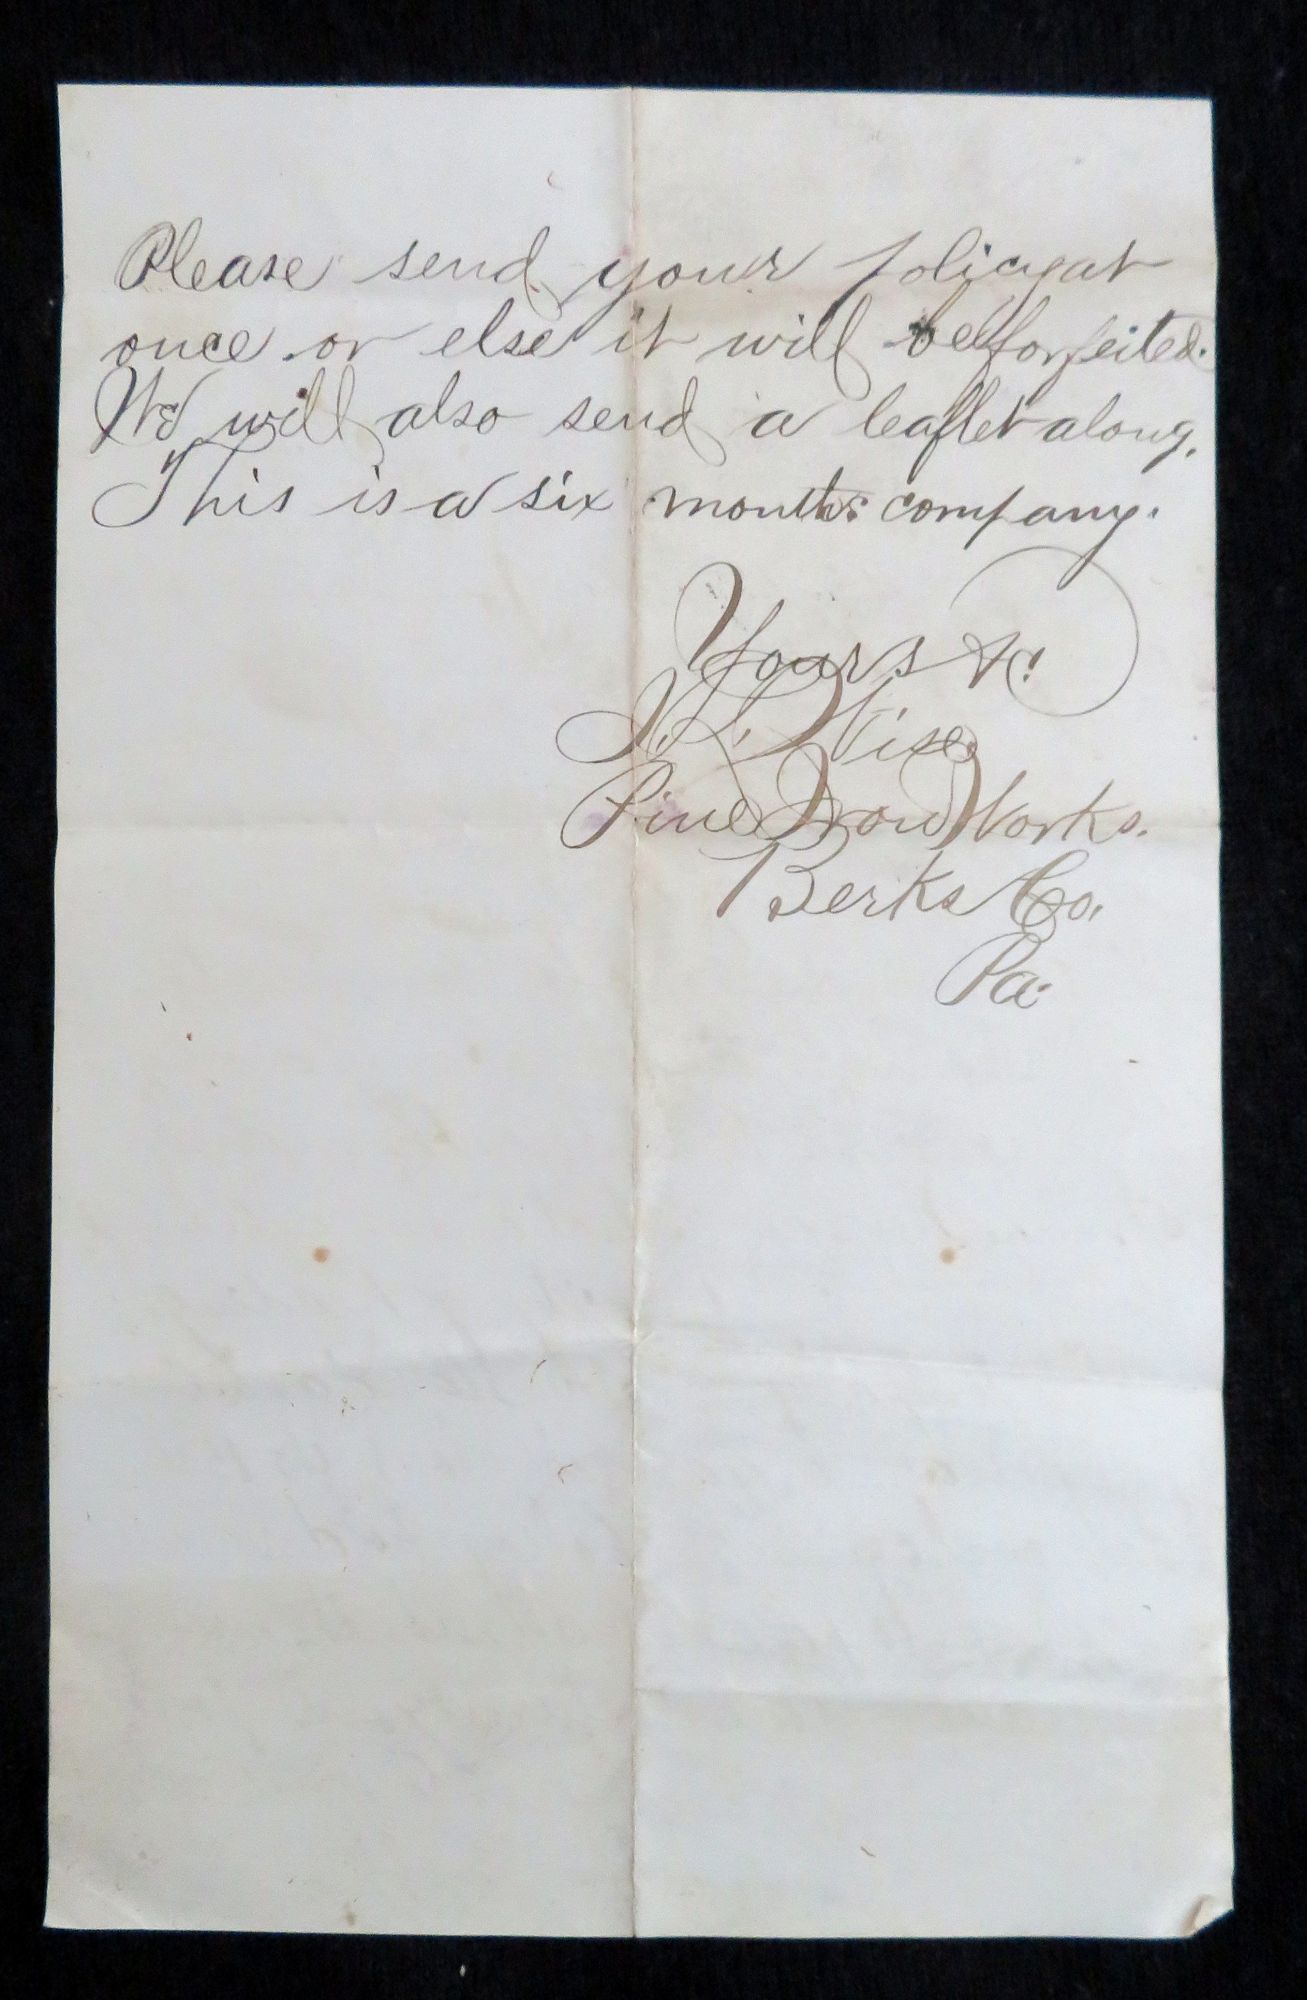 Please send your policy at
once or else it will be forfeited.
We will also send a leaflet along.
This is a six months company.
Yours &c.
Wise
Pine Iron Works.
Berks Co.
Pa.